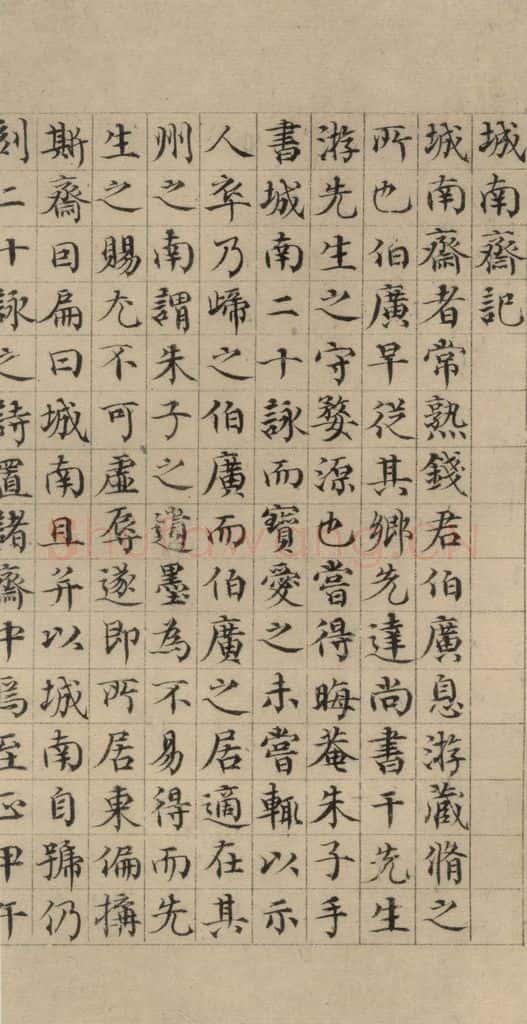 城南齋記
城南齋者常熟錢君伯廣息游藏脩之
所也伯廣早從其鄉先達尚書干先生
游先生之守婺源也嘗得晦菴朱子手
書城南二十詠而寶愛之未嘗輒以示
人卒乃歸之伯廣而伯廣之居適在其
州之南謂朱子之遺墨為不易得而先
生之賜尤不可虛辱遂即所居東偏搆
斯齋因扁曰城南且并以城南自號仍
刻二十詠之詩置諸齋中焉至正甲午